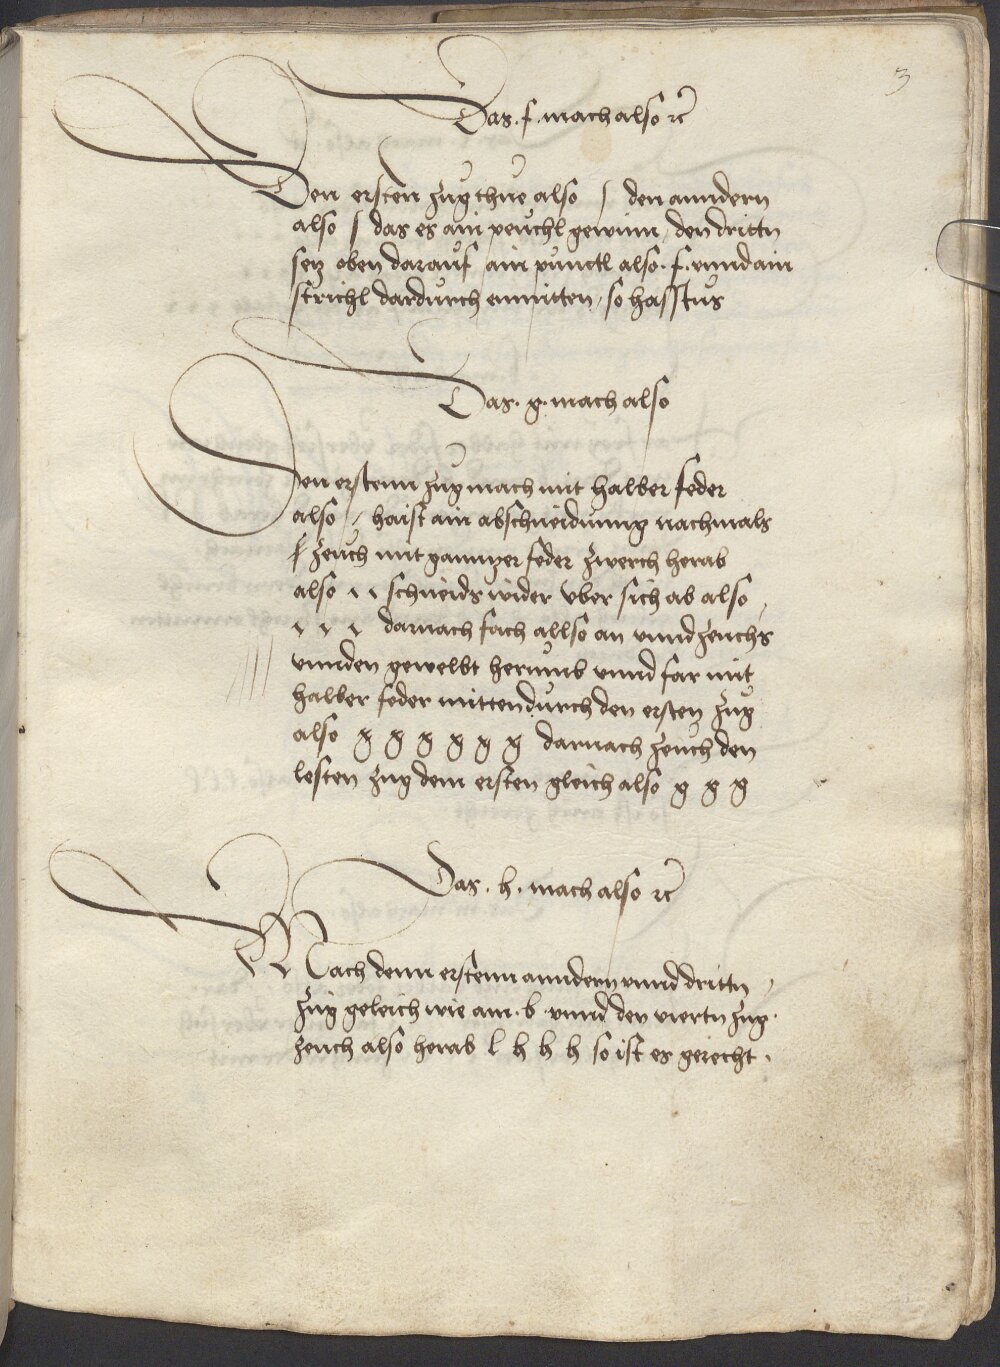 3
Das .f. mach also ꝛc
Den ersten zug thue also ſ den anndern
also ſ das es ain peuchl gewinn, den drittn
setz oben darauf ain punctl also .f. vnnd ain
strichl dardurch enmitten, so hasstus
Das .g. mach also
Den erstenn zug mach mit halber feder
also / haist ain abschneidung nachmals
zeuch mit ganntzer feder zwerch herab
also ı ı schneids wider vber sich ab also
ı ı ı darnach fach allso an vnnd zeuchs
vnnden gewelbt herumb vnnd far mit
halber feder mitten durch den ersten zug
also g g g g g g darnach zeuch den
lesten zug dem ersten gleich also g g g
Das .h. mach also ꝛc
Mach denn erstenn anndern vnnd drittn
zug geleich wie am .b. vnnd den viertn zug
zeuch also herab l h h h so ist es gerecht.